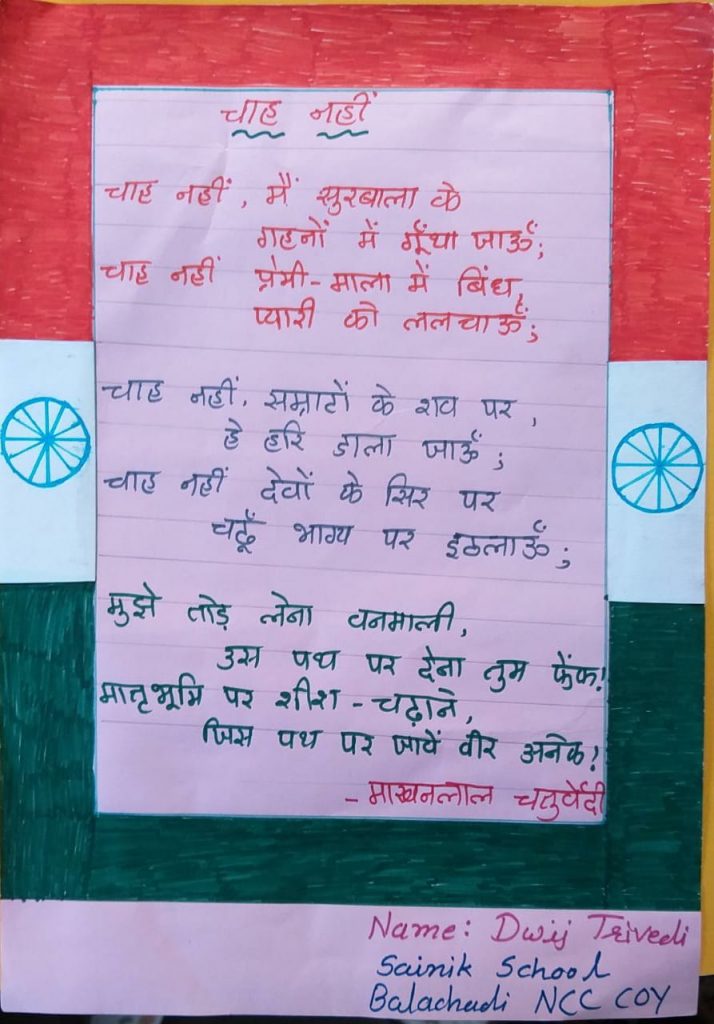 चाह नहीं
चाह नहीं, मैं सुरबाला के
गहनों में गूँथा जाऊँ;
चाह नहीं प्रेमी-माला में बिंध,
प्यारी को ललचाऊँ;
चाह नहीं, सम्राटों के शव पर,
हे हरि डाला जाऊँ;
चाह नहीं देवों के सिर पर
चढूँ भाग्य पर इठलाऊँ;
मुझे तोड़ लेना वनमाली,
उस पथ पर देना तुम फेंक!
मातृभूमि पर शीश-चढ़ाने,
जिस पथ पर जावें वीर अनेक!
-माखनलाल चतुर्वेदी
Name: Dwij Trivedi
Sainik School
Balachadi NCC COY